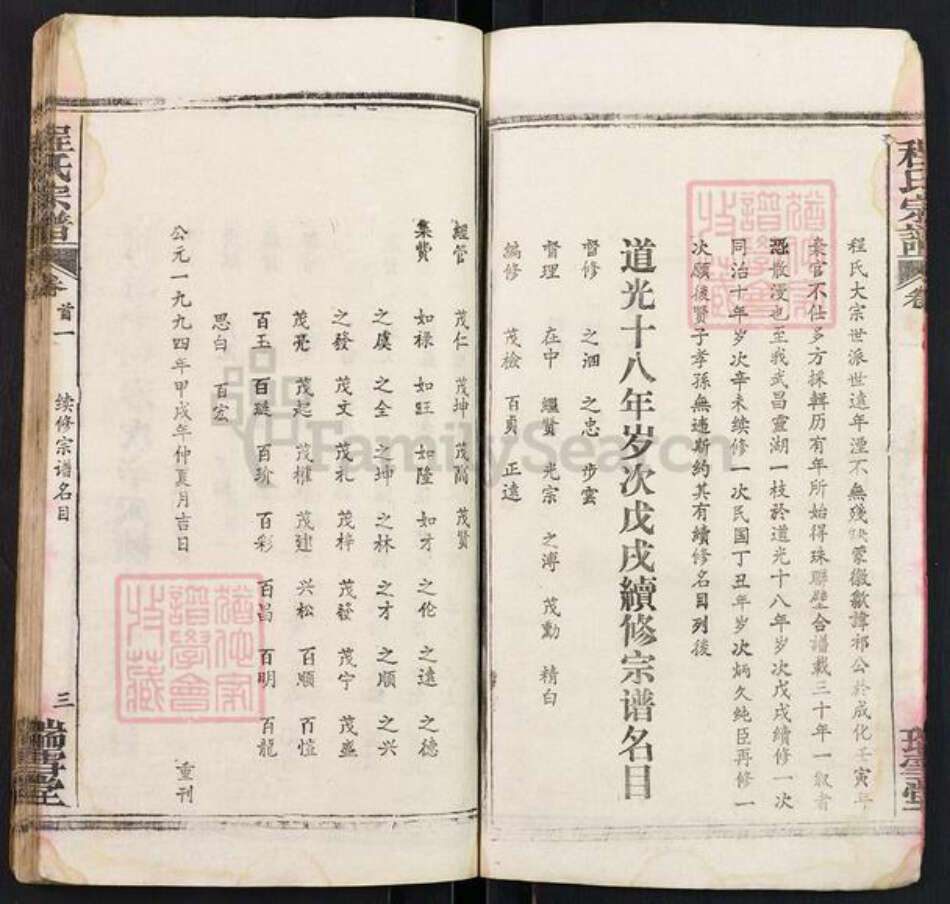 程氏宗譜
卷
瑞雪堂
程氏大宗世派世遠年湮不無殘缺蒙徽歙諱祁公於成化壬寅年
棄官不仕多方採輯历有年所始得珠聯璧合譜載三十年一級者
恐散漫也至我武昌靈湖一枝於道光十八年岁次戊戌續修一次
同治十年岁次辛未续修一次民国丁丑年岁次炳久純臣再修一
次願後賢子孝孫無違斯約其有續修名目列後
道光十八年岁次戊戌續修宗谱名目
督修 之泗 之忠 步雲
督理 在中 繼賢 光宗 之溥 茂勳 精白
編修 茂檢 百貢 正遠
經管 茂仁 茂坤 茂高 茂賢
集費 如祿 如旺 如隆 如才 之伦 之遠 之德
之虞 之全 之坤 之林 之才 之順 之兴
之發 茂文 茂礼 茂梓 茂發 茂宁 茂盛
茂亮 茂起 茂權 茂建 兴松 百順 百愷
百玉 百璇 百珍 百彩 百昌 百明 百龍
思白 百宏
公元一九九四年甲戌年仲夏月吉日 重刊
程氏宗譜
卷首一
续修宗谱名目
三
瑞雪堂
猶他家譜學會收藏
猶他家譜學會收藏
FamilySearch